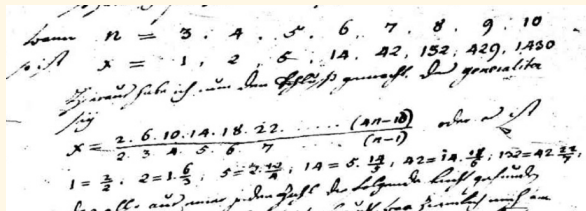 wann n = 3. 4. 5. 6. 7. 8. 9. 10
so ist x = 1, 2, 5, 14, 42, 152, 429, 1430
Hieraus habe ich nun den Schluß gemacht, daß generaliter
sey
x = \frac{2. 6. 10. 14. 18. 22. ...... (4n-10)}{2. 3. 4. 5. 6. 7 (n-1)} oder es ist
1 = \frac{2}{2}, 2 = 1.\frac{6}{3}, 5 = 2.\frac{10}{4}, 14 = 5.\frac{14}{5}, 42 = 14.\frac{18}{6}, 132 = 42.\frac{22}{7},
daß also aus einer jeden Zahl die folgende leicht gefunden